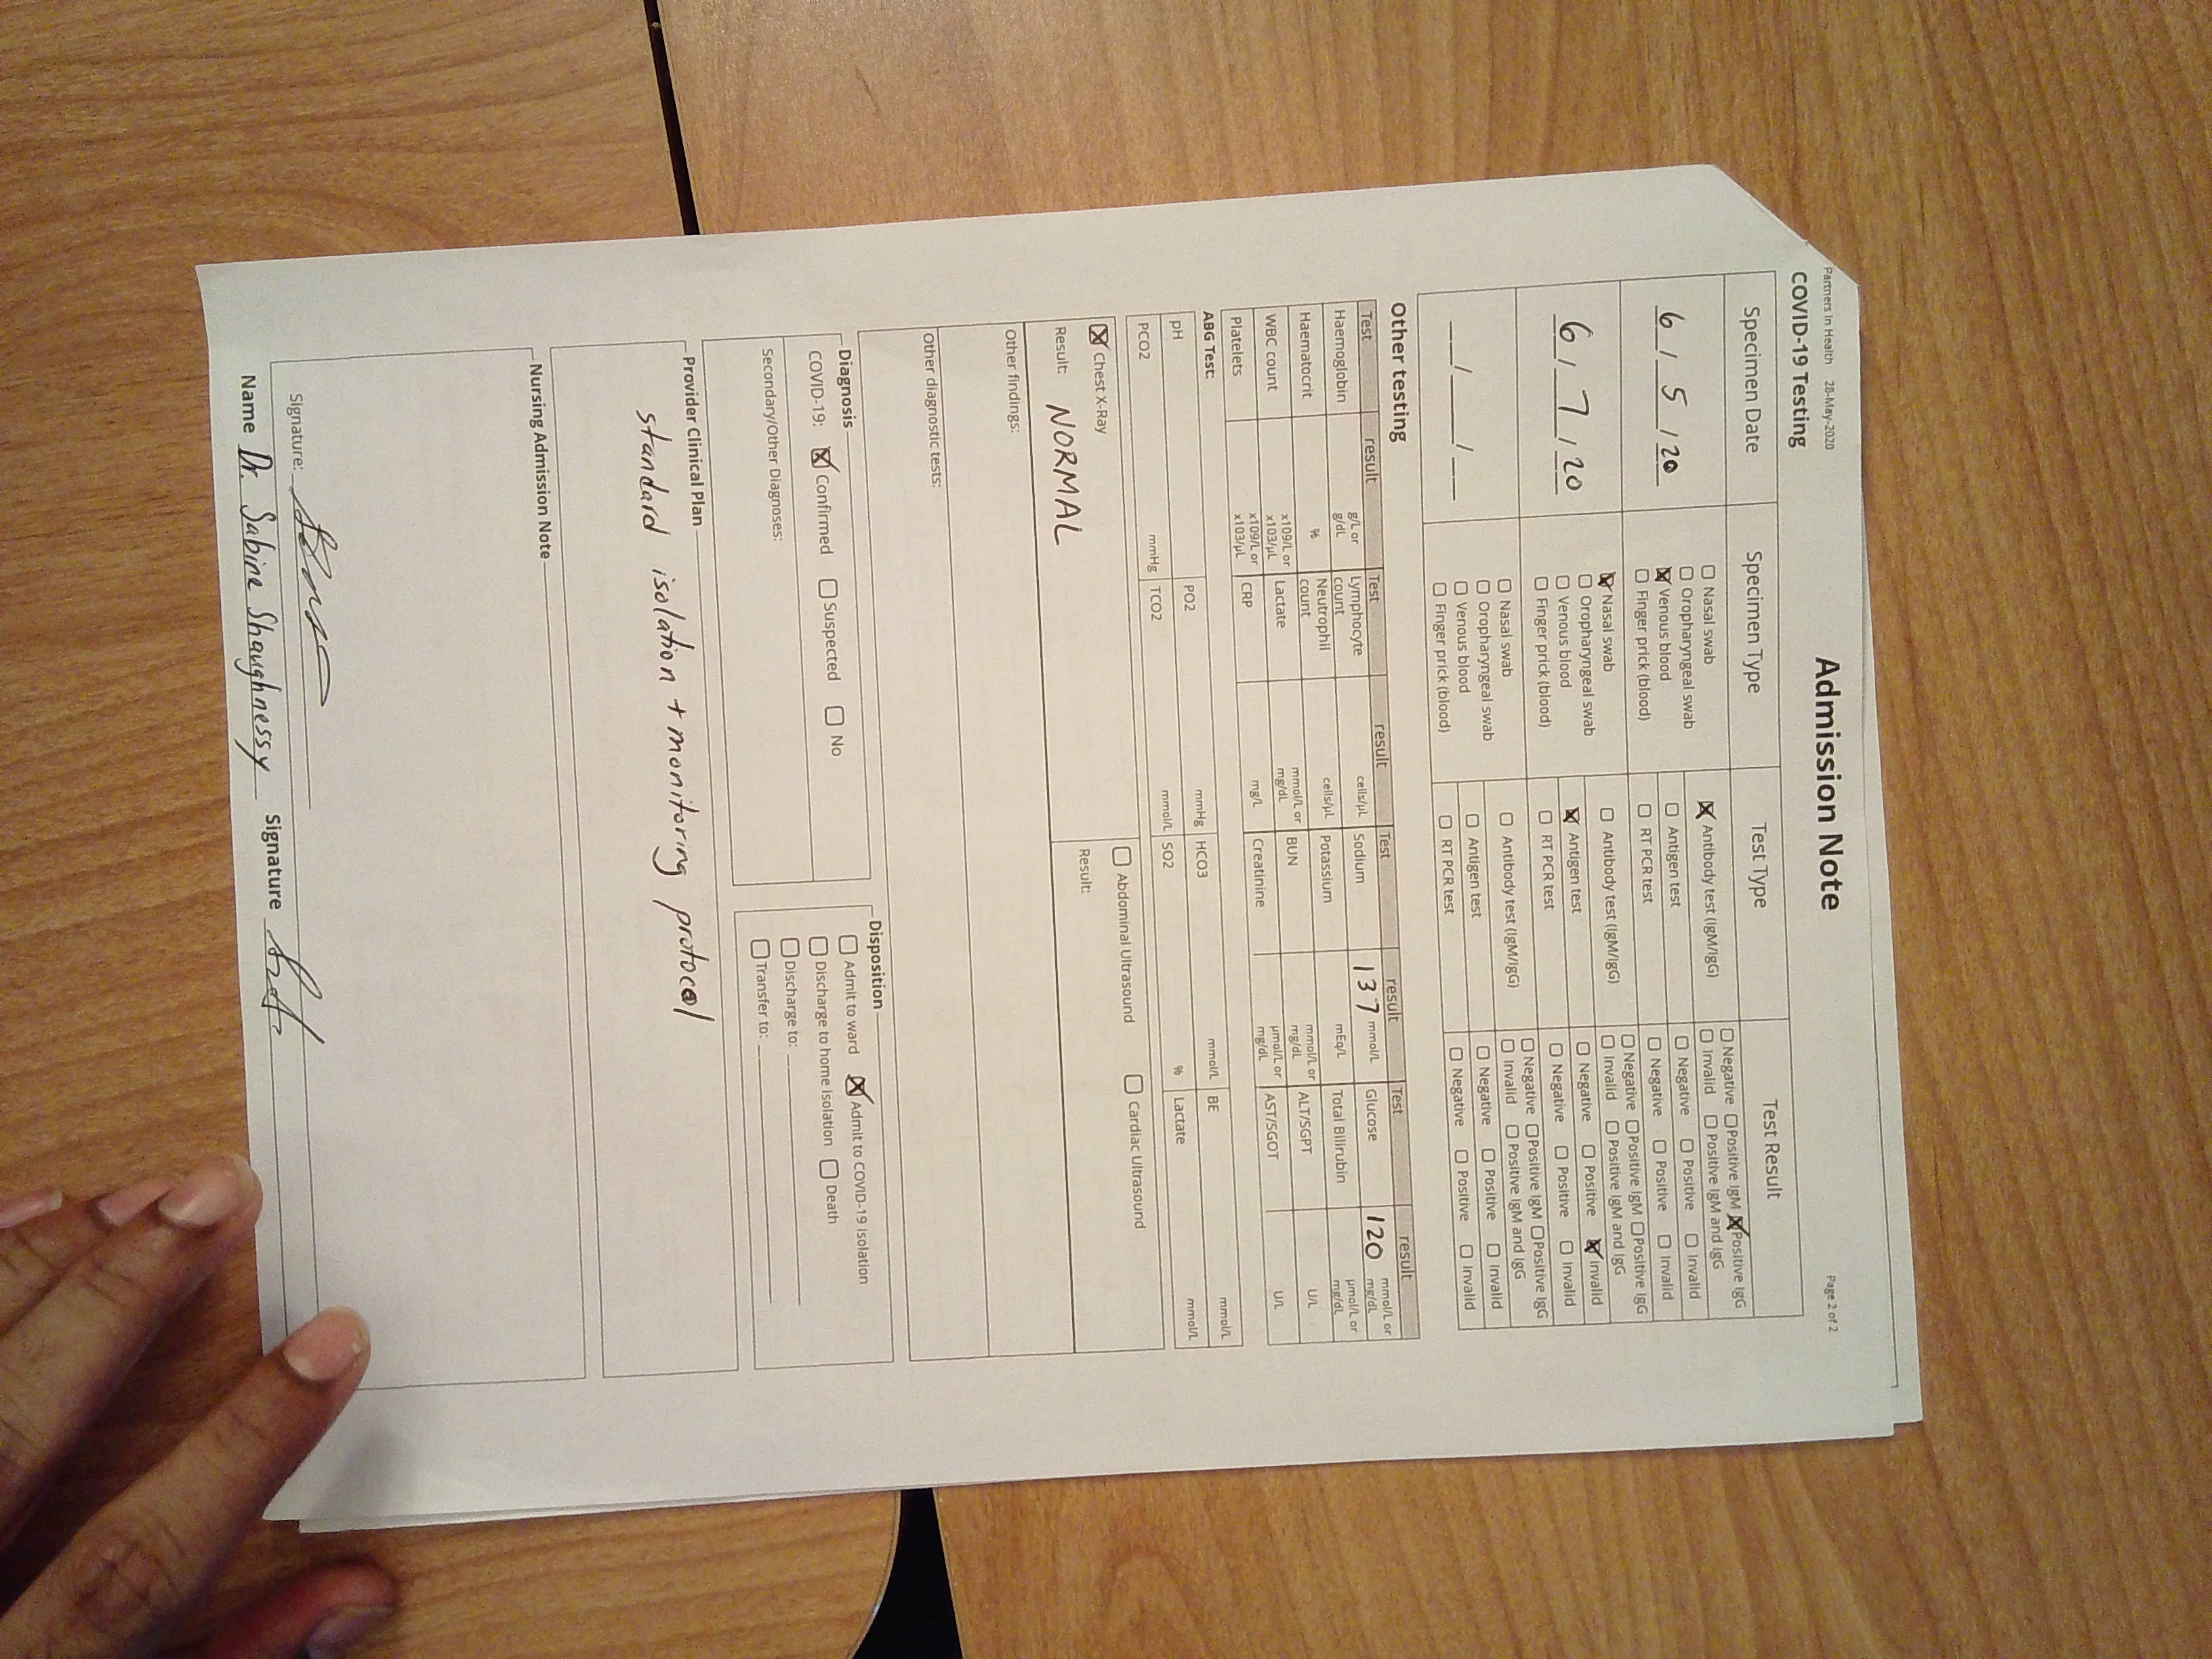 Partners In Health 28-May-2020 Page 2 of 2
Admission Note
COVID-19 Testing
Specimen Date Specimen Type Test Type Test Result
6 / 5 / 20
☐ Nasal swab
☐ Oropharyngeal swab
☒ Venous blood
☐ Finger prick (blood)
☒ Antibody test (IgM/IgG) ☐ Negative ☐ Positive IgM ☒ Positive IgG
☐ Invalid ☐ Positive IgM and IgG
☐ Antigen test ☐ Negative ☐ Positive ☐ Invalid
☐ RT PCR test ☐ Negative ☐ Positive ☐ Invalid
6 / 7 / 20
☒ Nasal swab
☐ Oropharyngeal swab
☐ Venous blood
☐ Finger prick (blood)
☐ Antibody test (IgM/IgG) ☐ Negative ☐ Positive IgM ☐ Positive IgG
☐ Invalid ☐ Positive IgM and IgG
☒ Antigen test ☐ Negative ☐ Positive ☒ Invalid
☐ RT PCR test ☐ Negative ☐ Positive ☐ Invalid
__ / __ / __
☐ Nasal swab
☐ Oropharyngeal swab
☐ Venous blood
☐ Finger prick (blood)
☐ Antibody test (IgM/IgG) ☐ Negative ☐ Positive IgM ☐ Positive IgG
☐ Invalid ☐ Positive IgM and IgG
☐ Antigen test ☐ Negative ☐ Positive ☐ Invalid
☐ RT PCR test ☐ Negative ☐ Positive ☐ Invalid
Other testing
Test result Test result Test result Test result
Haemoglobin g/L or g/dL Lymphocyte count cells/µL Sodium 137 mmol/L Glucose 120 mmol/L or mg/dL
Haematocrit % Neutrophil count cells/µL Potassium mEq/L Total Bilirubin µmol/L or mg/dL
WBC count x109/L or x103/µL Lactate mmol/L or mg/dL BUN mmol/L or mg/dL ALT/SGPT U/L
Platelets x109/L or x103/µL CRP mg/L Creatinine µmol/L or mg/dL AST/SGOT U/L
ABG Test:
pH PO2 mmHg HCO3 mmol/L BE mmol/L
PCO2 mmHg TCO2 mmol/L SO2 % Lactate mmol/L
☒ Chest X-Ray ☐ Abdominal Ultrasound ☐ Cardiac Ultrasound
Result: NORMAL Result:
Other findings:
Other diagnostic tests:
Diagnosis
COVID-19: ☒ Confirmed ☐ Suspected ☐ No
Secondary/Other Diagnoses:
Disposition
☐ Admit to ward ☒ Admit to COVID-19 Isolation
☐ Discharge to home isolation ☐ Death
☐ Discharge to:
☐ Transfer to:
Provider Clinical Plan
standard isolation + monitoring protocol
Nursing Admission Note
Signature:
Name Dr. Sabine Shaughnessy Signature